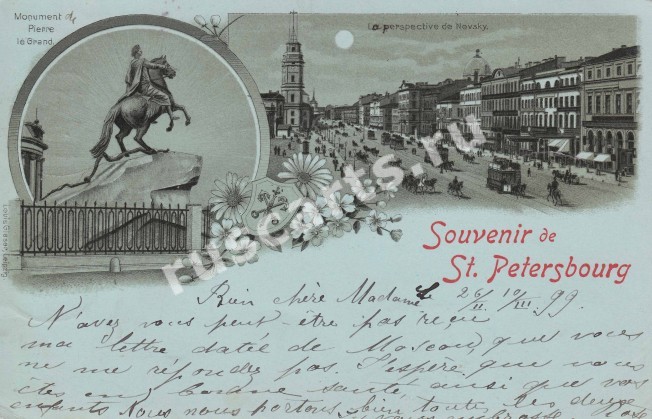 Monument de
Pierre
le Grand.
La perspective de Nevsky.
Souvenir de
St. Petersbourg
ruscarts.ru
Bien chère Madame 26/II 10/III 99.
N'avez vous peut-être pas reçu
ma lettre datée de Moscou, que vous
ne me répondez pas. J'espère que vous
êtes en bonne santé, ainsi que vos
enfants. Nous nous portons bien toute les deux